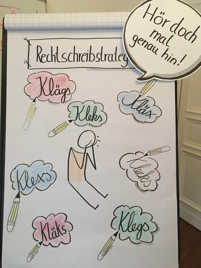 Hör doch
mal
genau hin!
Rechtschreibstrateg
Klägs
Kleks
Kläx
Klexs
Kläks
Klegs